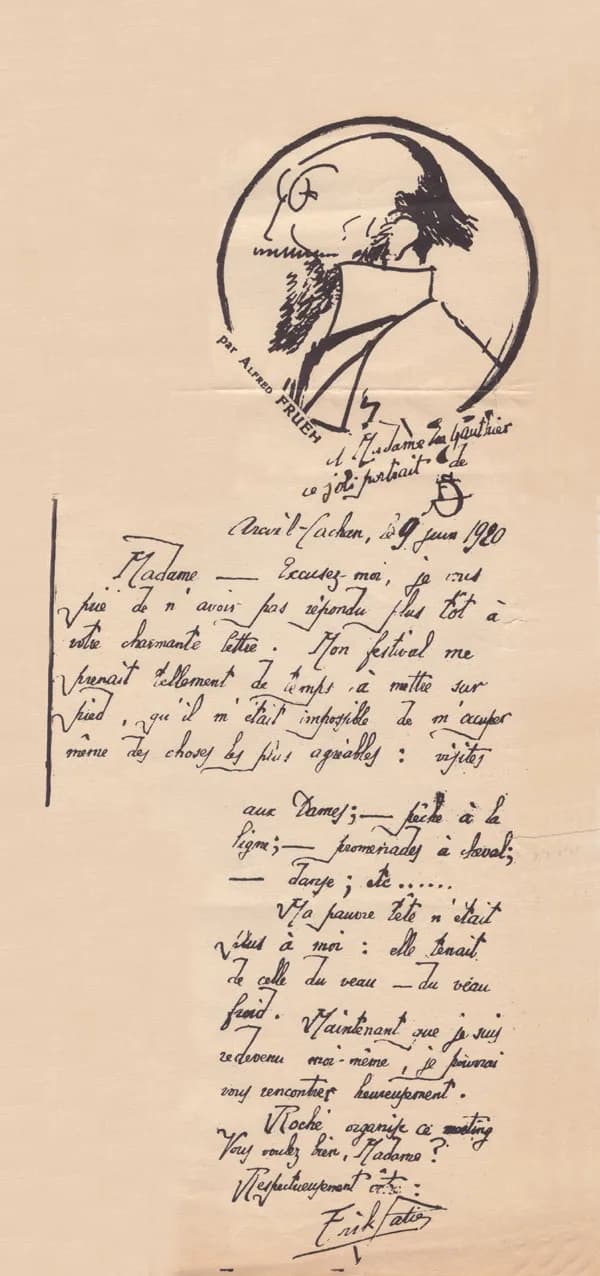 par ALFRED FRUEH
à Madame Eva Gauthier
ce joli portrait de
ES
Arcueil-Cachan, le 9 juin 1920
Madame — Excusez-moi, je vous
prie de n'avoir pas répondu plus tôt à
votre charmante lettre. Mon festival me
prenait tellement de temps à mettre sur
pied, qu'il m'était impossible de m'occuper
même des choses les plus agréables : visites
aux Dames; — pêche à la
ligne; — promenades à cheval;
— danse; etc......
Ma pauvre tête n'était
plus à moi : elle tenait
de celle du veau — du veau
froid. Maintenant que je suis
redevenu moi-même, je pourrai
vous rencontrer heureusement.
Roché organise ce meeting
Vous voulez bien, Madame ?
Respectueusement vôtre :
Erik Satie